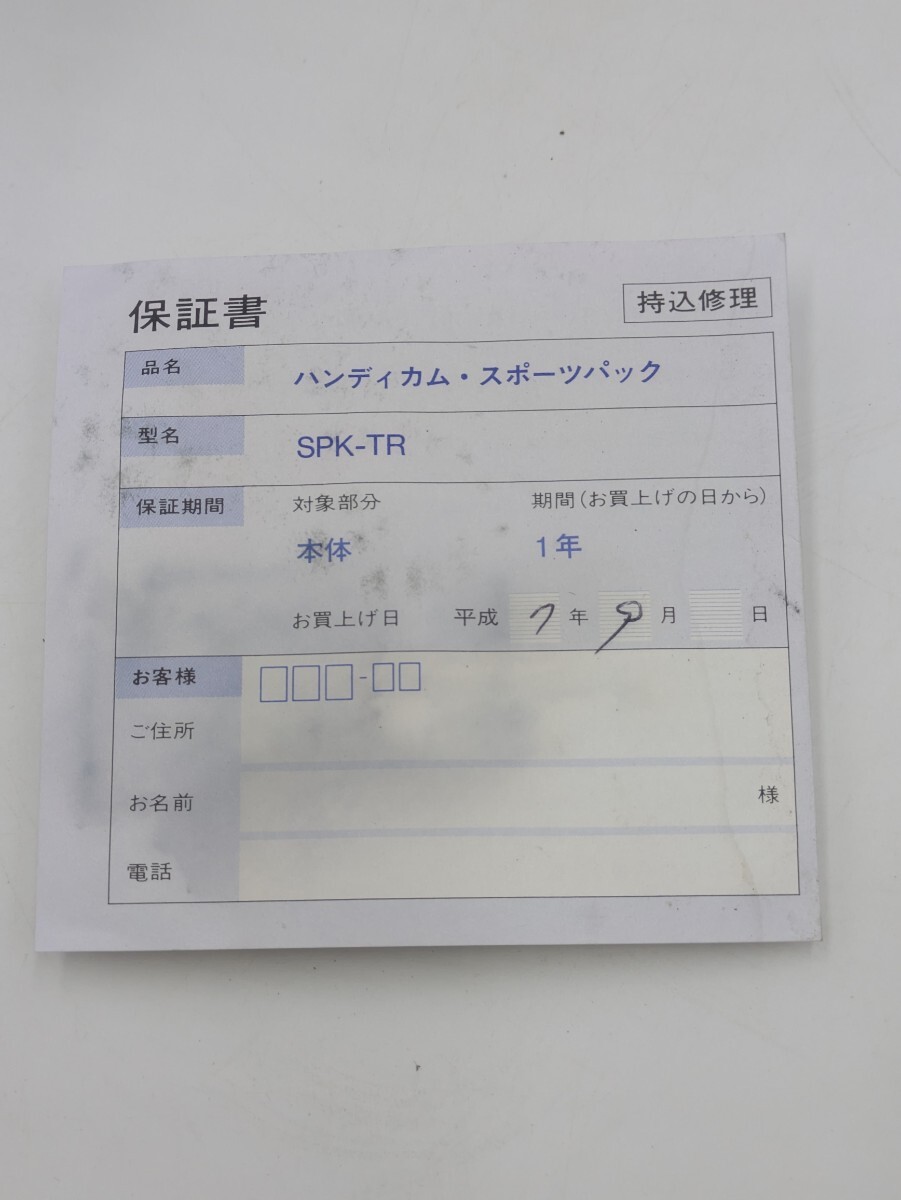 保証書
持込修理
品名 ハンディカム・スポーツパック
型名 SPK-TR
保証期間 対象部分 期間(お買上げの日から)
本体 1年
お買上げ日 平成 7 年 9 月 日
お客様 □□□-□□
ご住所
お名前 様
電話